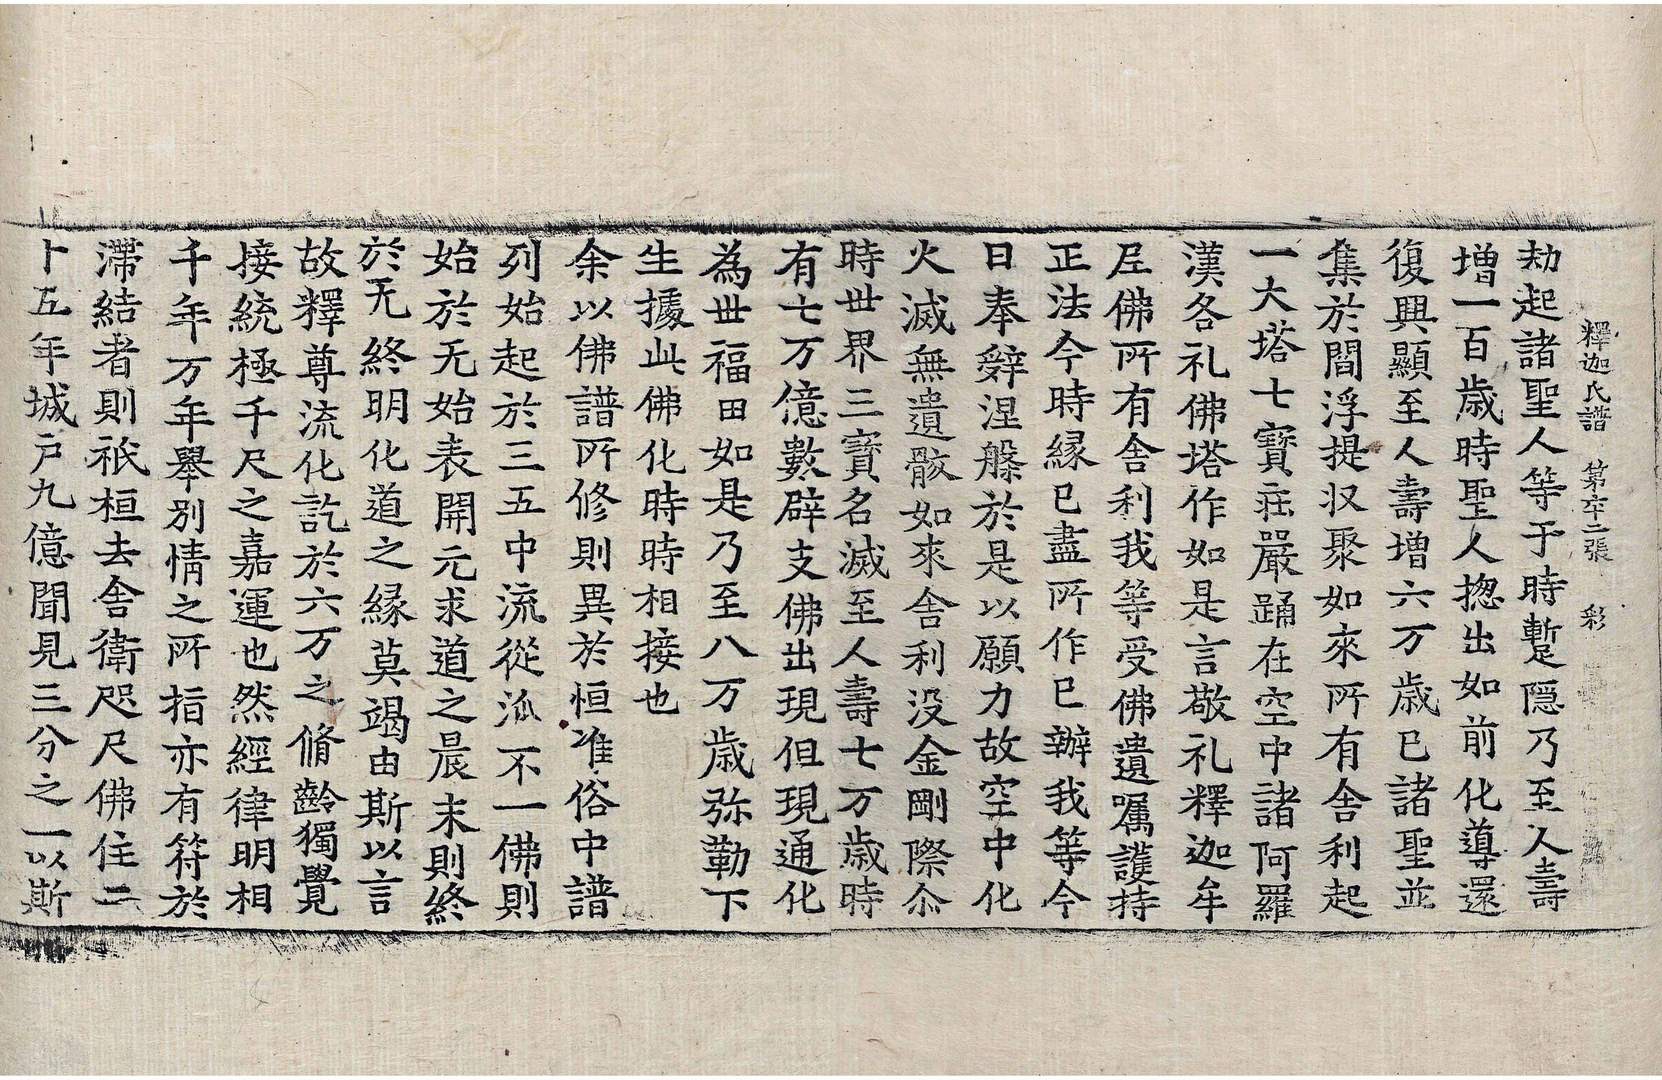 釋迦氏譜 第六十二張 彩
劫起諸聖人等于時蹔隱乃至人壽
增一百歲時聖人揔出如前化導還
復興顯至人壽增六万歲已諸聖並
集於閻浮提収聚如來所有舍利起
一大塔七寶莊嚴踊在空中諸阿羅
漢各礼佛塔作如是言敬礼釋迦牟
尼佛所有舍利我等受佛遺囑護持
正法今時緣已盡所作已辦我等今
日奉辤涅槃於是以願力故空中化
火滅無遺骸如來舍利没金剛際尒
時世界三寶名滅至人壽七万歲時
有七万億數辟支佛出現但現通化
為世福田如是乃至八万歲弥勒下
生據此佛化時時相接也
余以佛譜所修則異於恒准俗中譜
列始起於三五中流從泒不一佛則
始於无始表開元求道之晨末則終
於无終明化道之緣莫竭由斯以言
故釋尊流化訖於六万之脩齡獨覺
接統極千尺之嘉運也然經律明相
千年万年舉別情之所指亦有符於
滯結者則祇桓去舍衛咫尺佛住二
十五年城戶九億聞見三分之一以斯